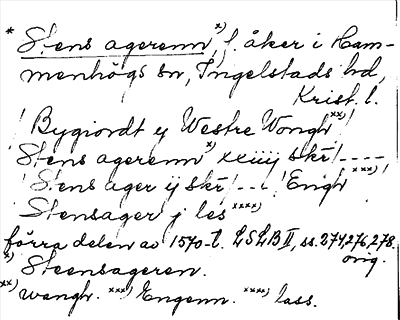 * Stens agerenn x), f. åker i Ham-
menhögs sn, Ingelstads hd,
Krist. l.
! Bygiordt ij Westre Wongh xx) !
Stens agerenn x) xxiiij skr ! ----
! Stens ager ij skr ! -- ! Engh xxx) !
Stensager j les xxxx)
förra delen av 1570-t. LSLB II, ss. 274, 276, 278.
orig.
x) Steensageren.
xx) wangh. xxx) Engenn. xxxx) lass.